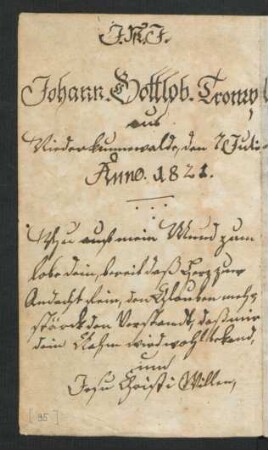 J. N. J.
Johann. Gottlob. Tromp
aus
Niederkunnerwalde, den 7 Juli
Anno. 1821.
Thu auf mein Mund zum
Lobe dein, bereit daß Herz zur
Andacht fein, den Glauben mehr,
stärck den Verstandt, daß mir
dein Nahm wird wohl bekand,
um
Jesu Christi Willen,
[35]